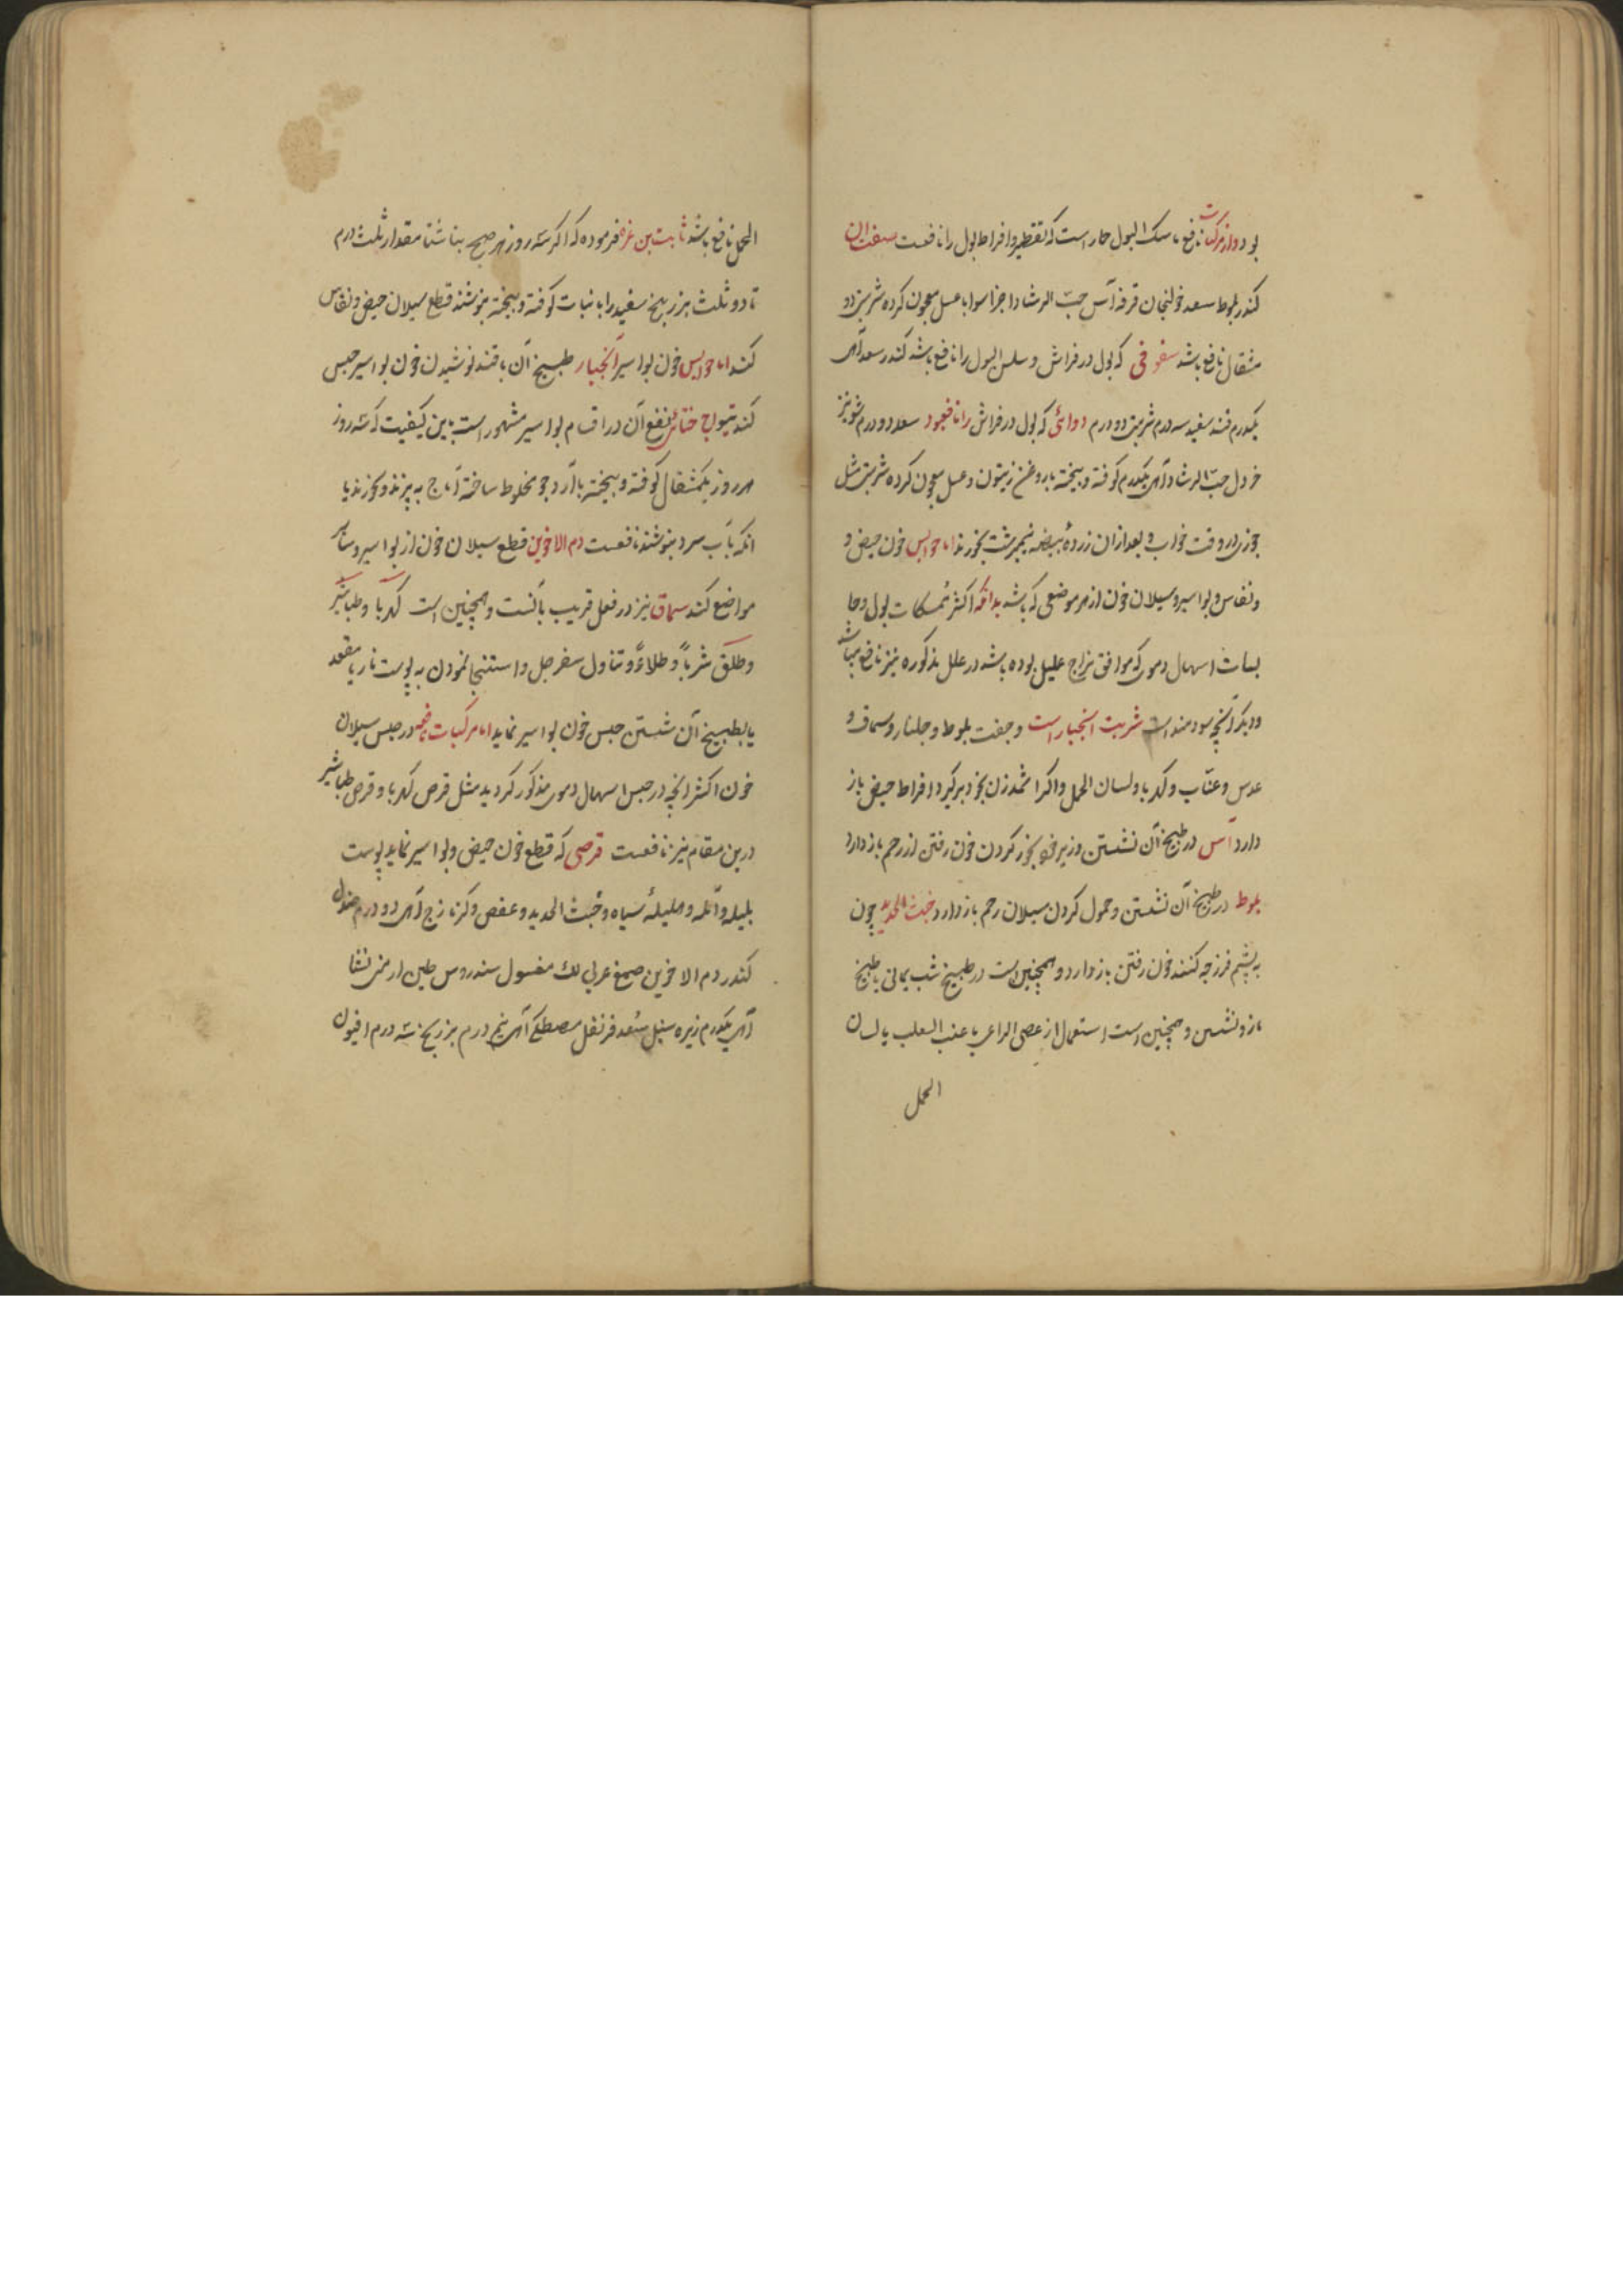 بود و از مرکبات نافع ماسک البول حار است که تقطیر و افراط بول را نافعست صفت آن
کندر بلوط سعد خولنجان قرفه آس حب الرشاد اجزا سوا با عسل معجون کرده شربتی دو
مثقال نافع باشد سفوفی که بول در فراش و سلس البول را نافع باشد کندر سعد از هر
یکدرم قند سفید سه درم شربتی دو درم دوائی که بول در فراش را نافع بود سعد دو درم شونیز
خردل حب الرشاد از هر یکدرم کوفته و بیخته با روغن زیتون و عسل معجون کرده شربتی مثل
جوزی در وقت خواب و بعد از ان زرده بیضه نیمبرشت بخورند اما حوابس خون حیض و
و نفاس و بواسیر و سیلان خون از هر موضعی که باشد بدانکه اکثر ممسکات بول و حا
بسات اسهال دموی که موافق مزاج علیل بوده باشد در علل مذکوره نیز نافع میباشد
و دیگر آنچه سودمند است شربت انجبار است و جفت بلوط و جلنار و سماق و
عدس و عناب و کهربا و لسان الحمل و اگر اثمد زن بخود برگیرد افراط حیض باز
دارد آس در طبیخ آن نشستن و زیر خود بخور کردن خون رفتن از رحم باز دارد
بلوط در طبیخ آن نشستن و حمول کردن سیلان رحم باز دارد خبث الحدید چون
به پشم فرزجه کنند خون رفتن باز دارد و همچنین است در طبیخ شب یمانی یا طبیخ
مازو نشستن و همچنین است استعمال از عصی الراعی یا عنب الثعلب یا لسان
الحمل
الحمل نافع باشد ثابت بن قره فرموده که اگر سه روز هر صبح بناشتا مقدار ثلث درم
تا دو ثلث بزر بنج سفید را با نبات کوفته و بیخته بنوشند قطع سیلان حیض و نفاس
کند اما حوابس خون بواسیر انجبار طبیخ آن با قند نوشیدن خون بواسیر حبس
کند تیواج ختائی نفع آن در اقسام بواسیر مشهور است باین کیفیت که سه روز
هر روز یکمثقال کوفته و بیخته با آرد جو مخلوط ساخته اماج به پزند و بخورند یا
انکه بآب سرد بنوشند نافعست دم الاخوین قطع سیلان خون از بواسیر و سایر
مواضع کند سماق نیز در فعل قریب بآنست و همچنین است کهربا و طباشیر
و طلق شرباً و طلاءً و تناول سفرجل و استنجا نمودن به پوست نار یا مقعد
یا بطبیخ آن شستن حبس خون بواسیر نماید اما مرکبات نافعه در حبس سیلان
خون اکثر انچه در حبس اسهال دموی مذکور گردید مثل قرص کهربا و قرص طباشیر
درین مقام نیز نافعست قرصی که قطع خون حیض و بواسیر نماید پوست
بلیله و آمله و هلیلهٔ سیاه و خبث الحدید و عفص و کزمازج از هر دو درم صندل
کندر دم الاخوین صمغ عربی لک مغسول سندروس طین ارمنی نشا
از هر یکدرم زیره سنبل سعد قرنفل مصطکی از هر نیم درم بزر بنج سه درم افیون